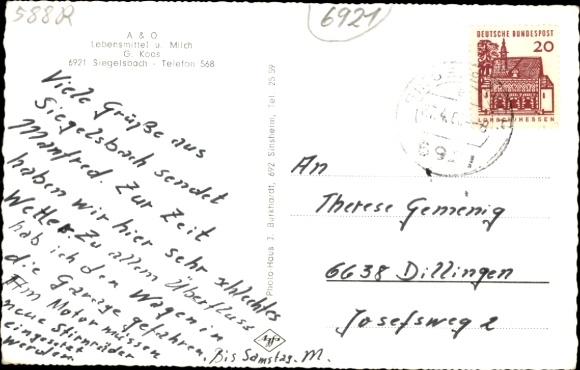 588R
6921
A & O
Lebensmittel u. Milch
G. Koos
6921 Siegelsbach - Telefon 568
Viele Grüße aus
Siegelsbach sendet
Manfred. Zur Zeit
haben wir hier sehr schlechtes
Wetter. Zu allem Überfluss
hab ich den Wagen in
die Garage gefahren.
Am Motor müssen
neue Stirnräder
eingesetzt
werden. Bis Samstag. M.
Photo-Haus J. Burkhardt, 692 Sinsheim, Tel. 25 59
Agfa
DEUTSCHE BUNDESPOST
20
LORSCH/HESSEN
An
Therese Gemenig
6638 Dillingen
Josefsweg 2